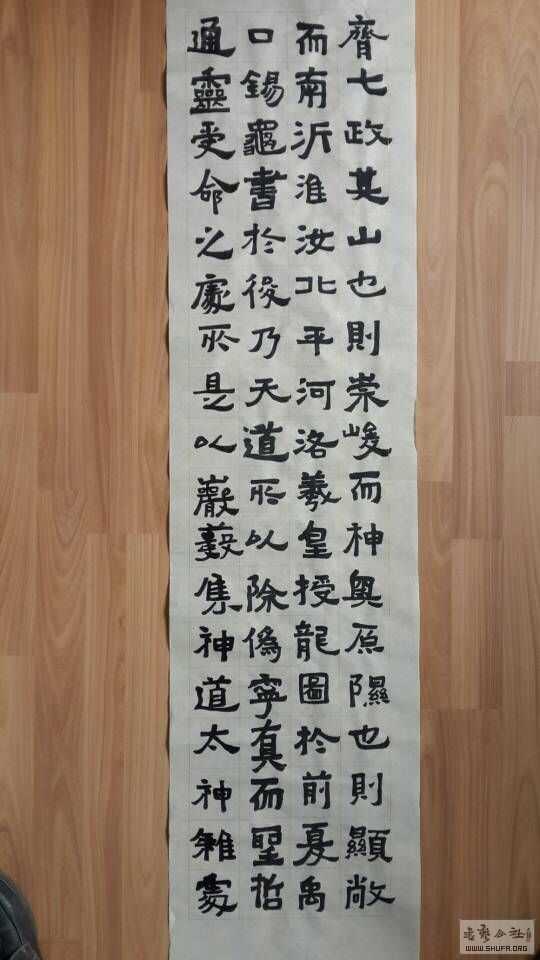 齊七政其山也則崇峻而神奥原隰也則顯敞
而南沂淮汝北平河洛羲皇授龍圖於前夏禹
口錫龜書於後乃天道所以除偽寧真而聖哲
通靈受命之處所是以巖藪集神道太神雜處
书艺公社
WWW.SHUFA.ORG